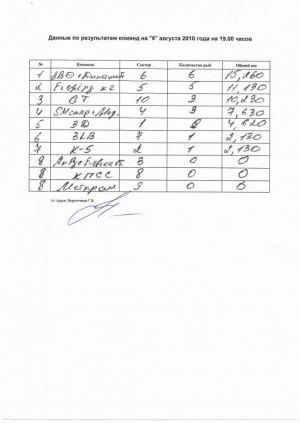 Данные по результатам команд на "6" августа 2010 года на 19.00 часов
№ Команда Сектор Количество рыб Общий вес
1 6 6 15,260
2 Fishing кг 5 5 11,130
3 GT 10 3 10,230
4 4 3 7,630
5 3D 1 4,820
6 3LB 7 1 2,130
7 K-5 2 1 2,130
8 3 0 0
8 КПСС 8 0 0
8 Метром 9 0 0
Гл. судья Воротников Г.В.